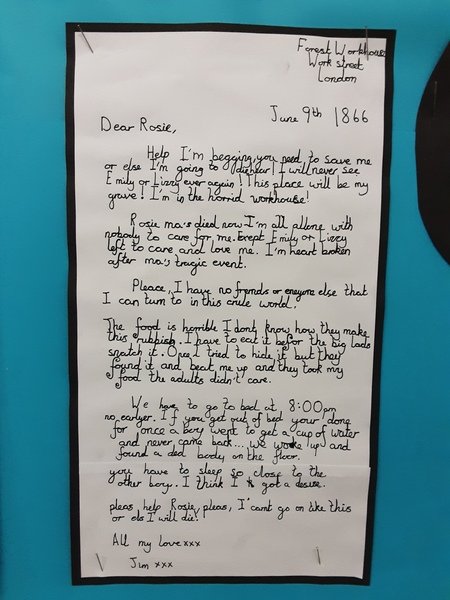 Forest Workhouse
Work street
London
June 9th 1866
Dear Rosie,
Help I'm begging you need to save me
or else I'm going to die here! I will never see
Emily or Lizzy ever again! This place will be my
grave! I'm in the horrid workhouse!
Rosie ma's died now I'm all allone with
nobody to care for me. Exept Emily or Lizzy
left to care and love me. I'm heart broken
after ma's tragic event.
Pleace, I have no friends or eneyone else that
I can turn to in this crule world.
The food is horrible I dont know how they make
this rubbish. I have to eat it befor the big lads
snatch it. Once I tried to hide it but they
found it and beat me up and they took my
food the adults didn't care.
We have to go to bed at 8:00pm
no earlyer. If you get out of bed your done
for once a boy went to get a cup of water
and never came back... we woke up and
found a ded body on the floor.
you have to sleep so close to the
other boys. I think I got a desise.
pleas help Rosie, pleas, I cant go on like this
or els I will die!
All my love xxx
Jim xxx